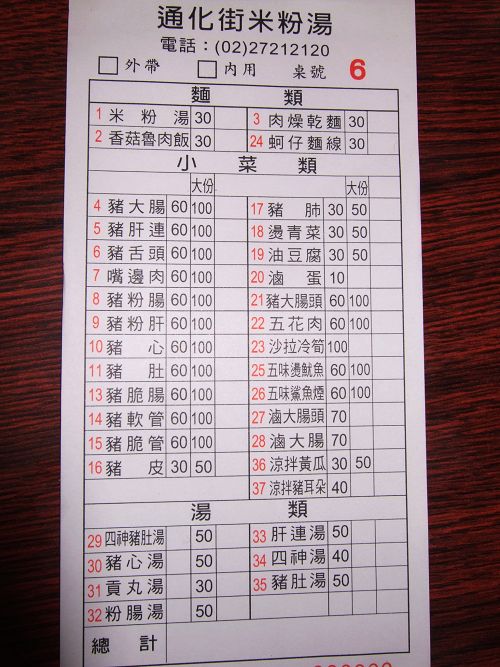 通化街米粉湯
電話：(02)27212120
外帶 內用 桌號 6
麵類
1 米粉湯 30 3 肉燥乾麵 30
2 香菇魯肉飯 30 24 蚵仔麵線 30
小菜類
大份 大份
4 豬大腸 60 100 17 豬肺 30 50
5 豬肝連 60 100 18 燙青菜 30 50
6 豬舌頭 60 100 19 油豆腐 30 50
7 嘴邊肉 60 100 20 滷蛋 10
8 豬粉腸 60 100 21 豬大腸頭 60 100
9 豬粉肝 60 100 22 五花肉 60 100
10 豬心 60 100 23 沙拉冷筍 100
11 豬肚 60 100 25 五味燙魷魚 60 100
13 豬脆腸 60 100 26 五味鯊魚煙 60 100
14 豬軟管 60 100 27 滷大腸頭 70
15 豬脆管 60 100 28 滷大腸 70
16 豬皮 30 50 36 涼拌黃瓜 30 50
37 涼拌豬耳朵 40
湯類
29 四神豬肚湯 50 33 肝連湯 50
30 豬心湯 50 34 四神湯 40
31 貢丸湯 30 35 豬肚湯 50
32 粉腸湯 50
總計